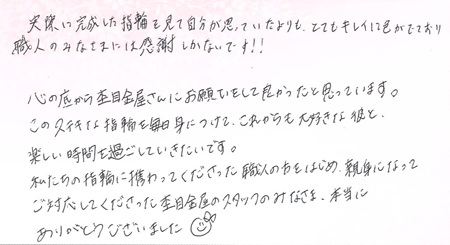 実際に完成した指輪を見て自分が思っていたよりも、とてもキレイに色がでており
職人のみなさまには感謝しかないです!!
心の底から杢目金屋さんにお願いをして良かったと思っています。
このステキな指輪を毎日身につけて、これからも大好きな彼と、
楽しい時間を過ごしていきたいです。
私たちの指輪に携わってくださった職人の方をはじめ、親身になって
ご対応してくださった杢目金屋のスタッフのみなさま、本当に
ありがとうございました